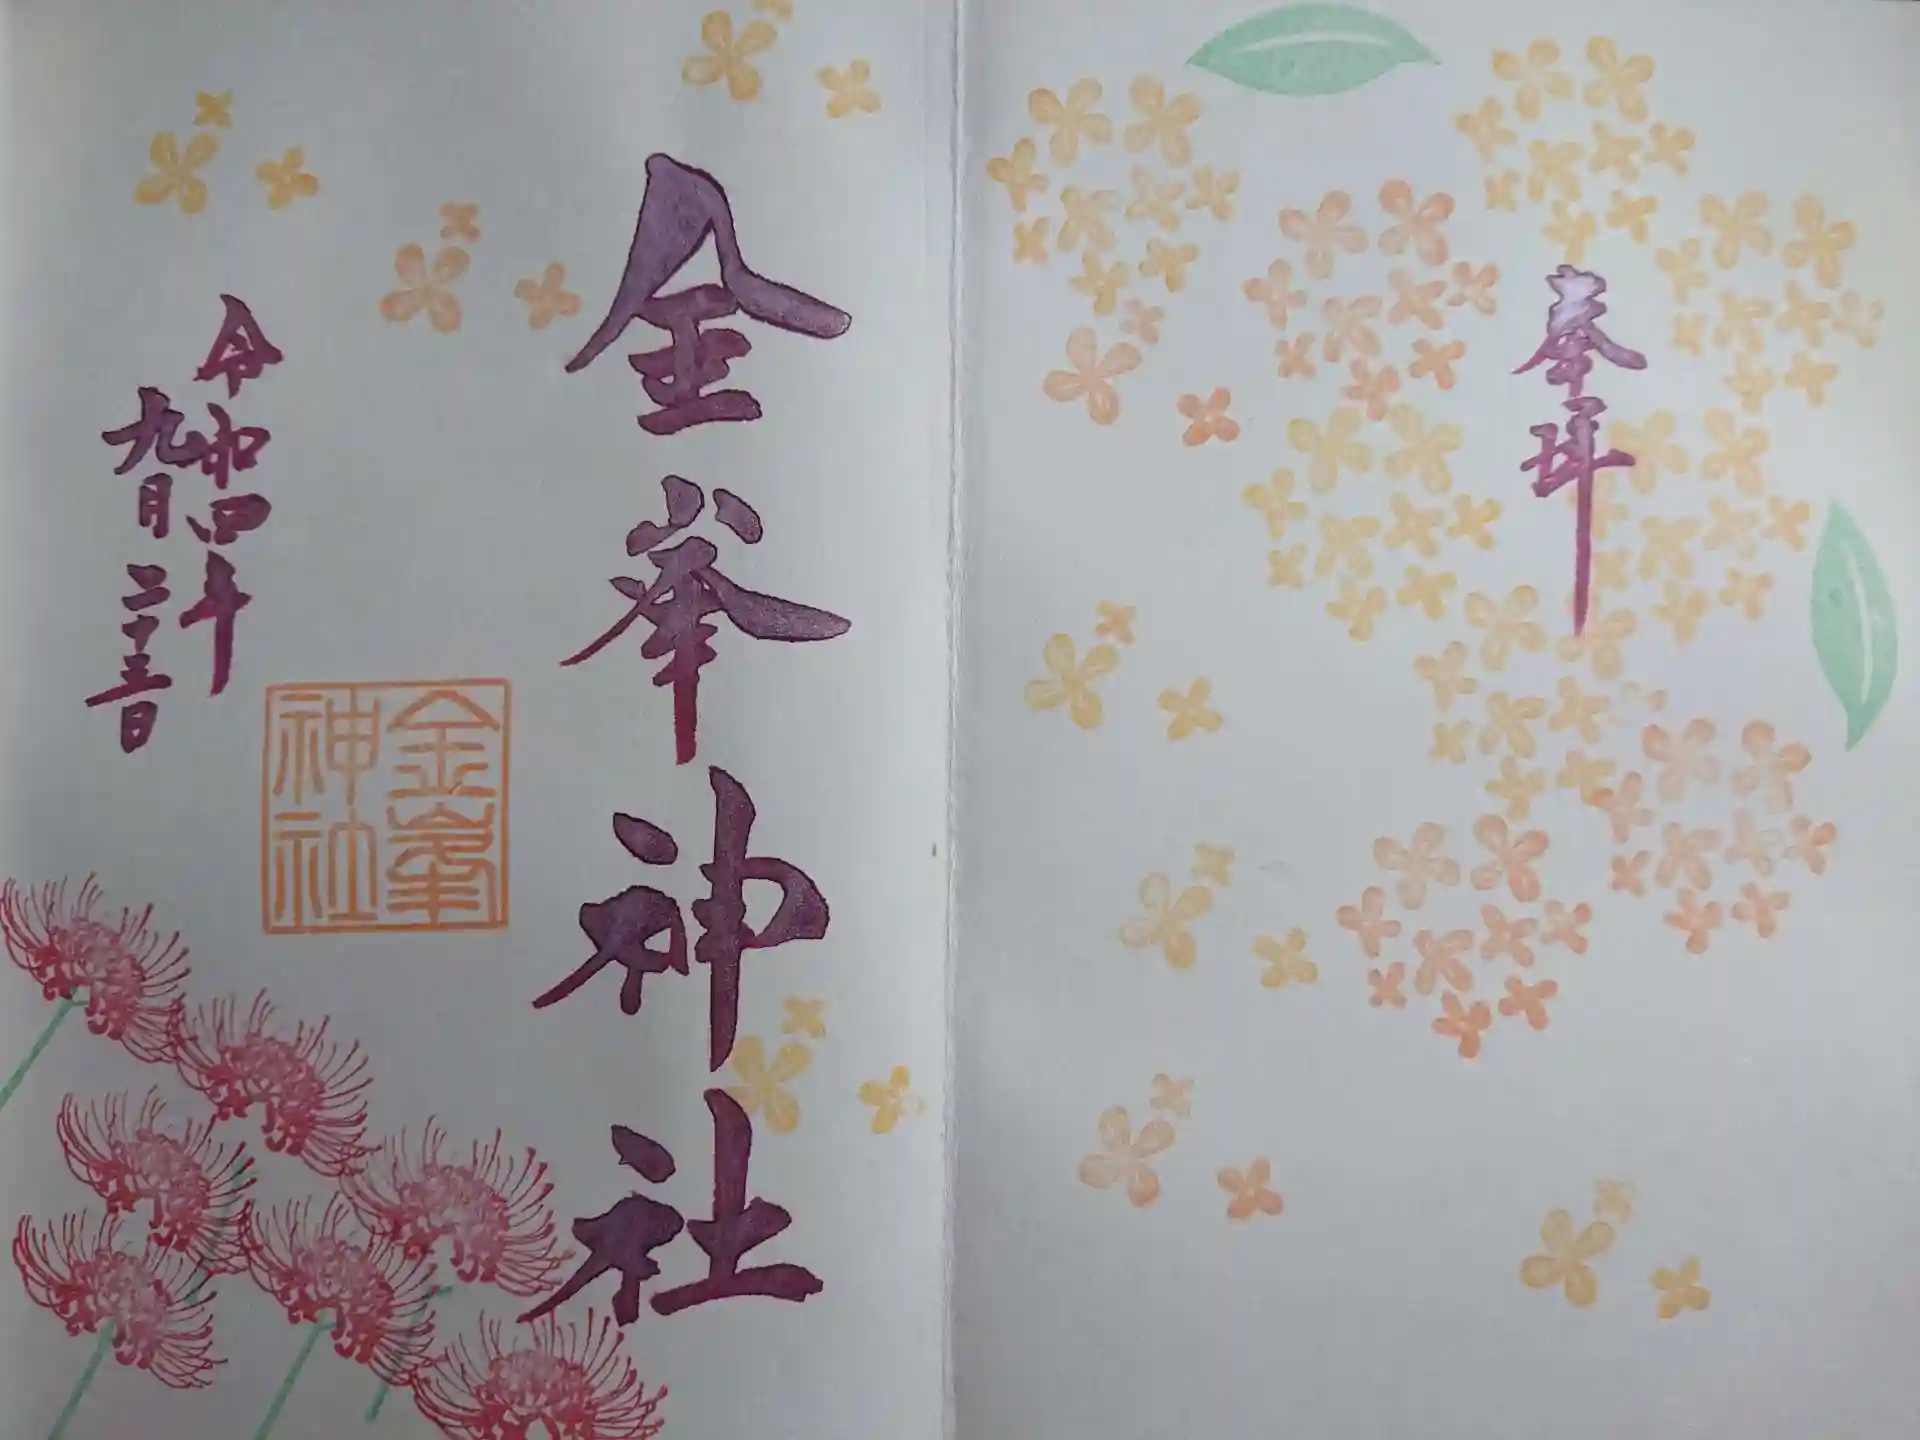 奉拝
金峯神社
令和四年
九月二十三日
金峯
神社